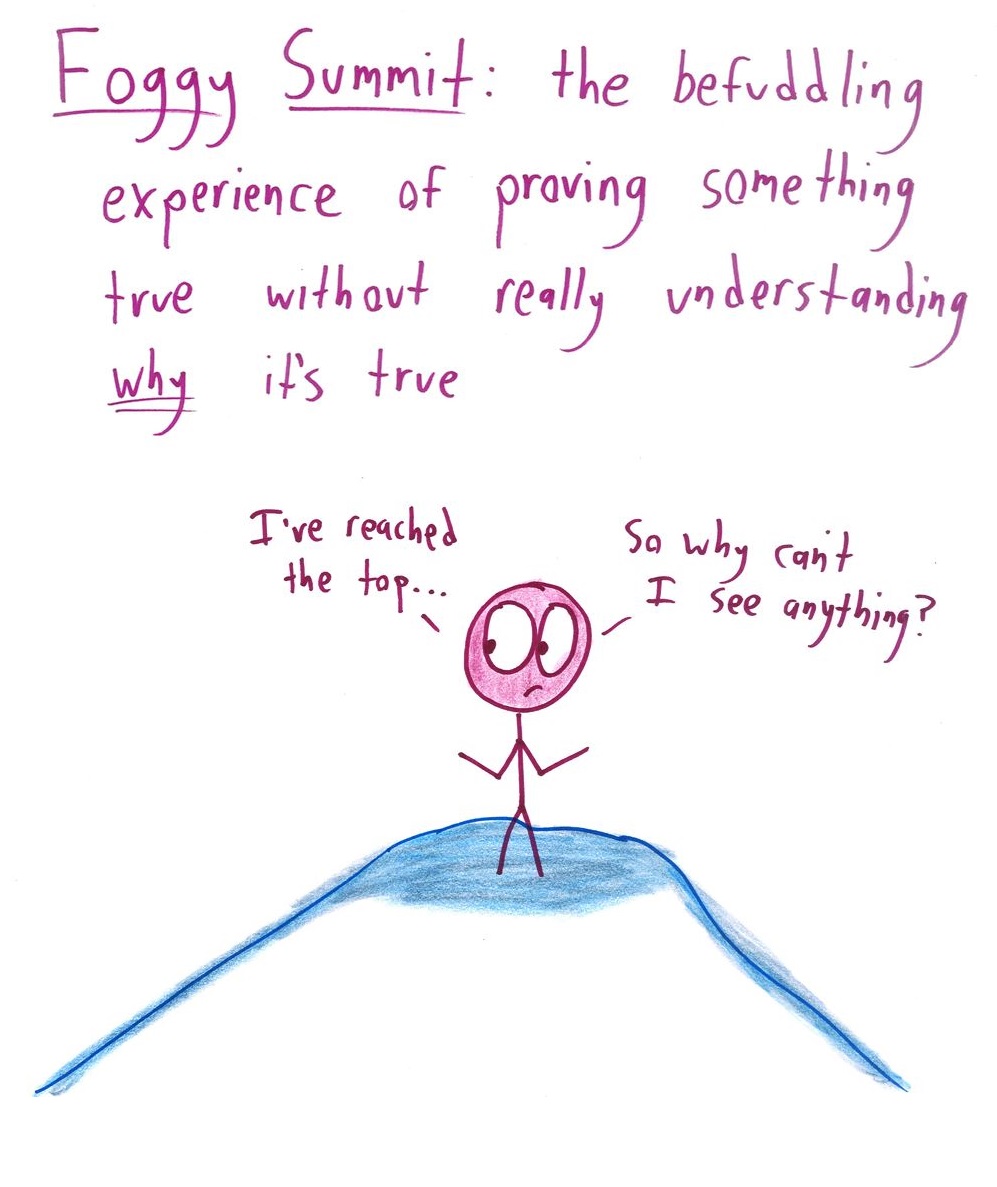 Foggy Summit: the befuddling
experience of proving something
true without really understanding
why it's true
I've reached
the top...
So why can't
I see anything?